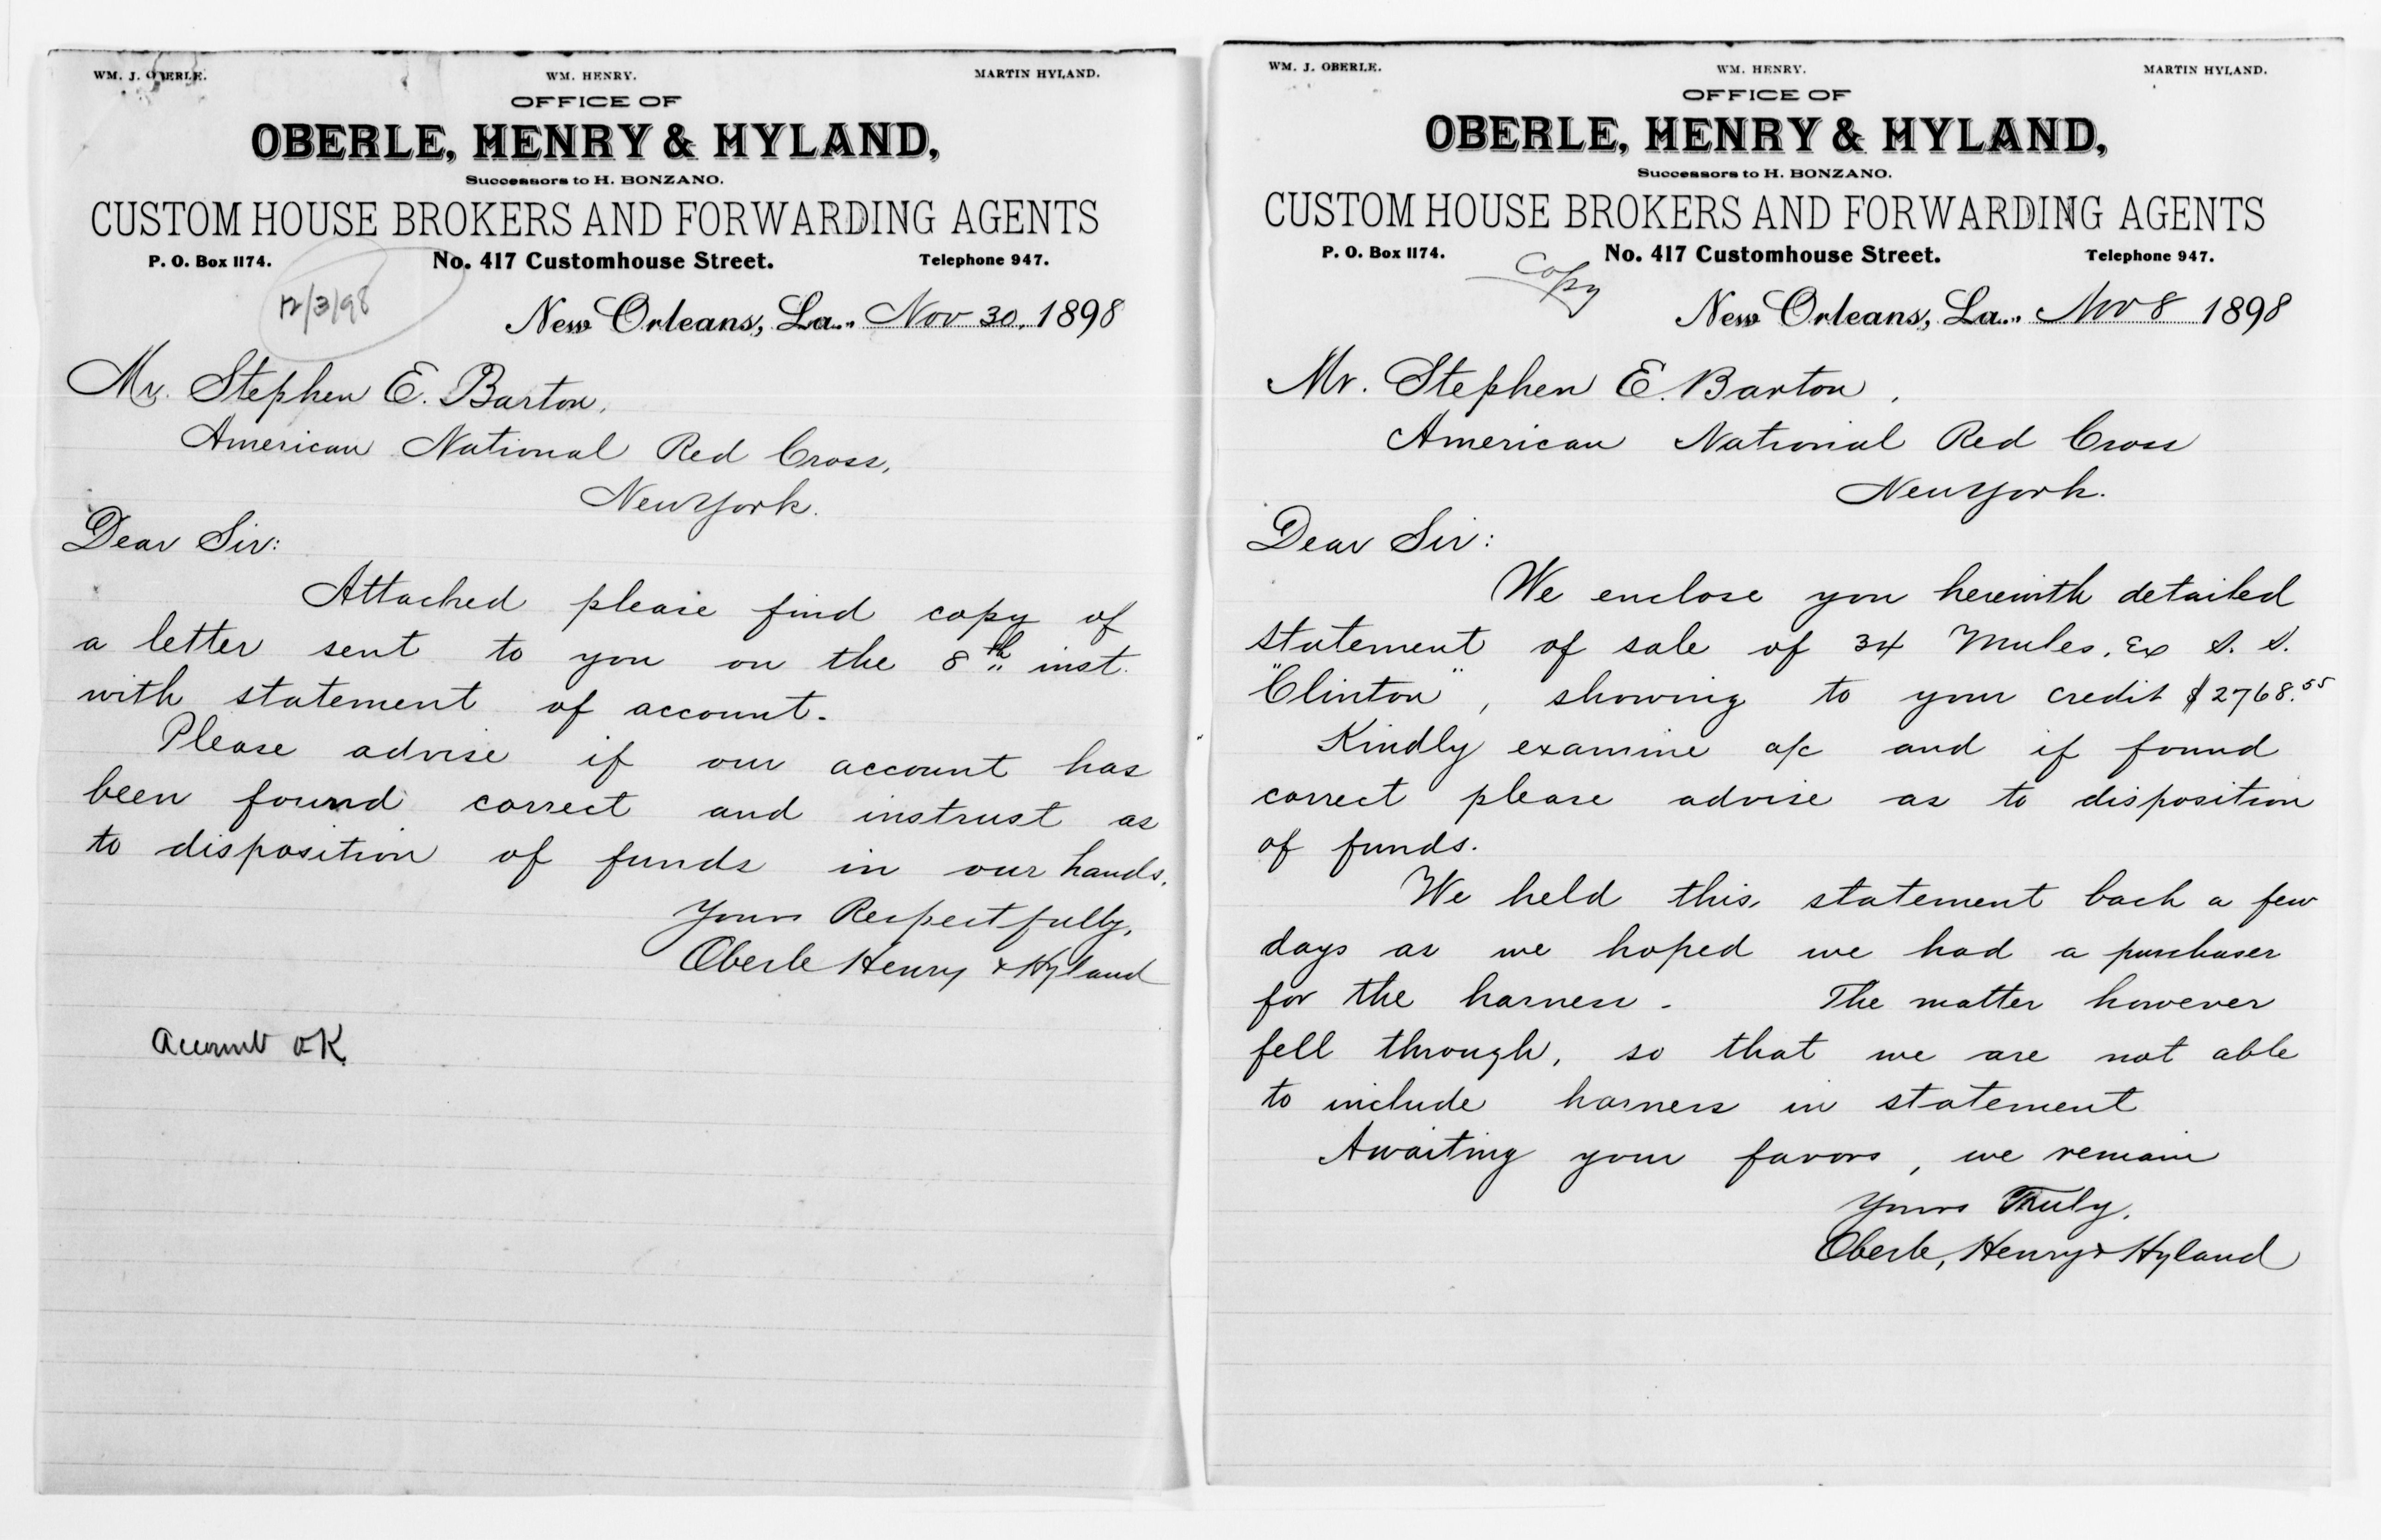 WM. J. OBERLE. WM. HENRY. MARTIN HYLAND.
OFFICE OF
OBERLE, HENRY & HYLAND,
Successors to H. BONZANO.
CUSTOM HOUSE BROKERS AND FORWARDING AGENTS
P. O. Box 1174. No. 417 Customhouse Street. Telephone 947.
12/3/98
New Orleans, La., Nov 30, 1898
Mr. Stephen E. Barton,
American National Red Cross,
New York.
Dear Sir:
Attached please find copy of
a letter sent to you on the 8th inst.
with statement of account.
Please advise if our account has
been found correct and instrust as
to disposition of funds in our hands.
Yours Respectfully,
Oberle Henry & Hyland
Account OK
WM. J. OBERLE. WM. HENRY. MARTIN HYLAND.
OFFICE OF
OBERLE, HENRY & HYLAND,
Successors to H. BONZANO.
CUSTOM HOUSE BROKERS AND FORWARDING AGENTS
P. O. Box 1174. No. 417 Customhouse Street. Telephone 947.
Copy
New Orleans, La., Nov 8 1898
Mr. Stephen E. Barton,
American National Red Cross
New York.
Dear Sir:
We enclose you herewith detailed
statement of sale of 34 Mules, Ex S. S.
"Clinton", showing to your credit $2768.55
Kindly examine a/c and if found
correct please advise as to disposition
of funds.
We held this statement back a few
days as we hoped we had a purchaser
for the harness - The matter however
fell through, so that we are not able
to include harness in statement
Awaiting your favors, we remain
Yours Truly,
Oberle, Henry & Hyland